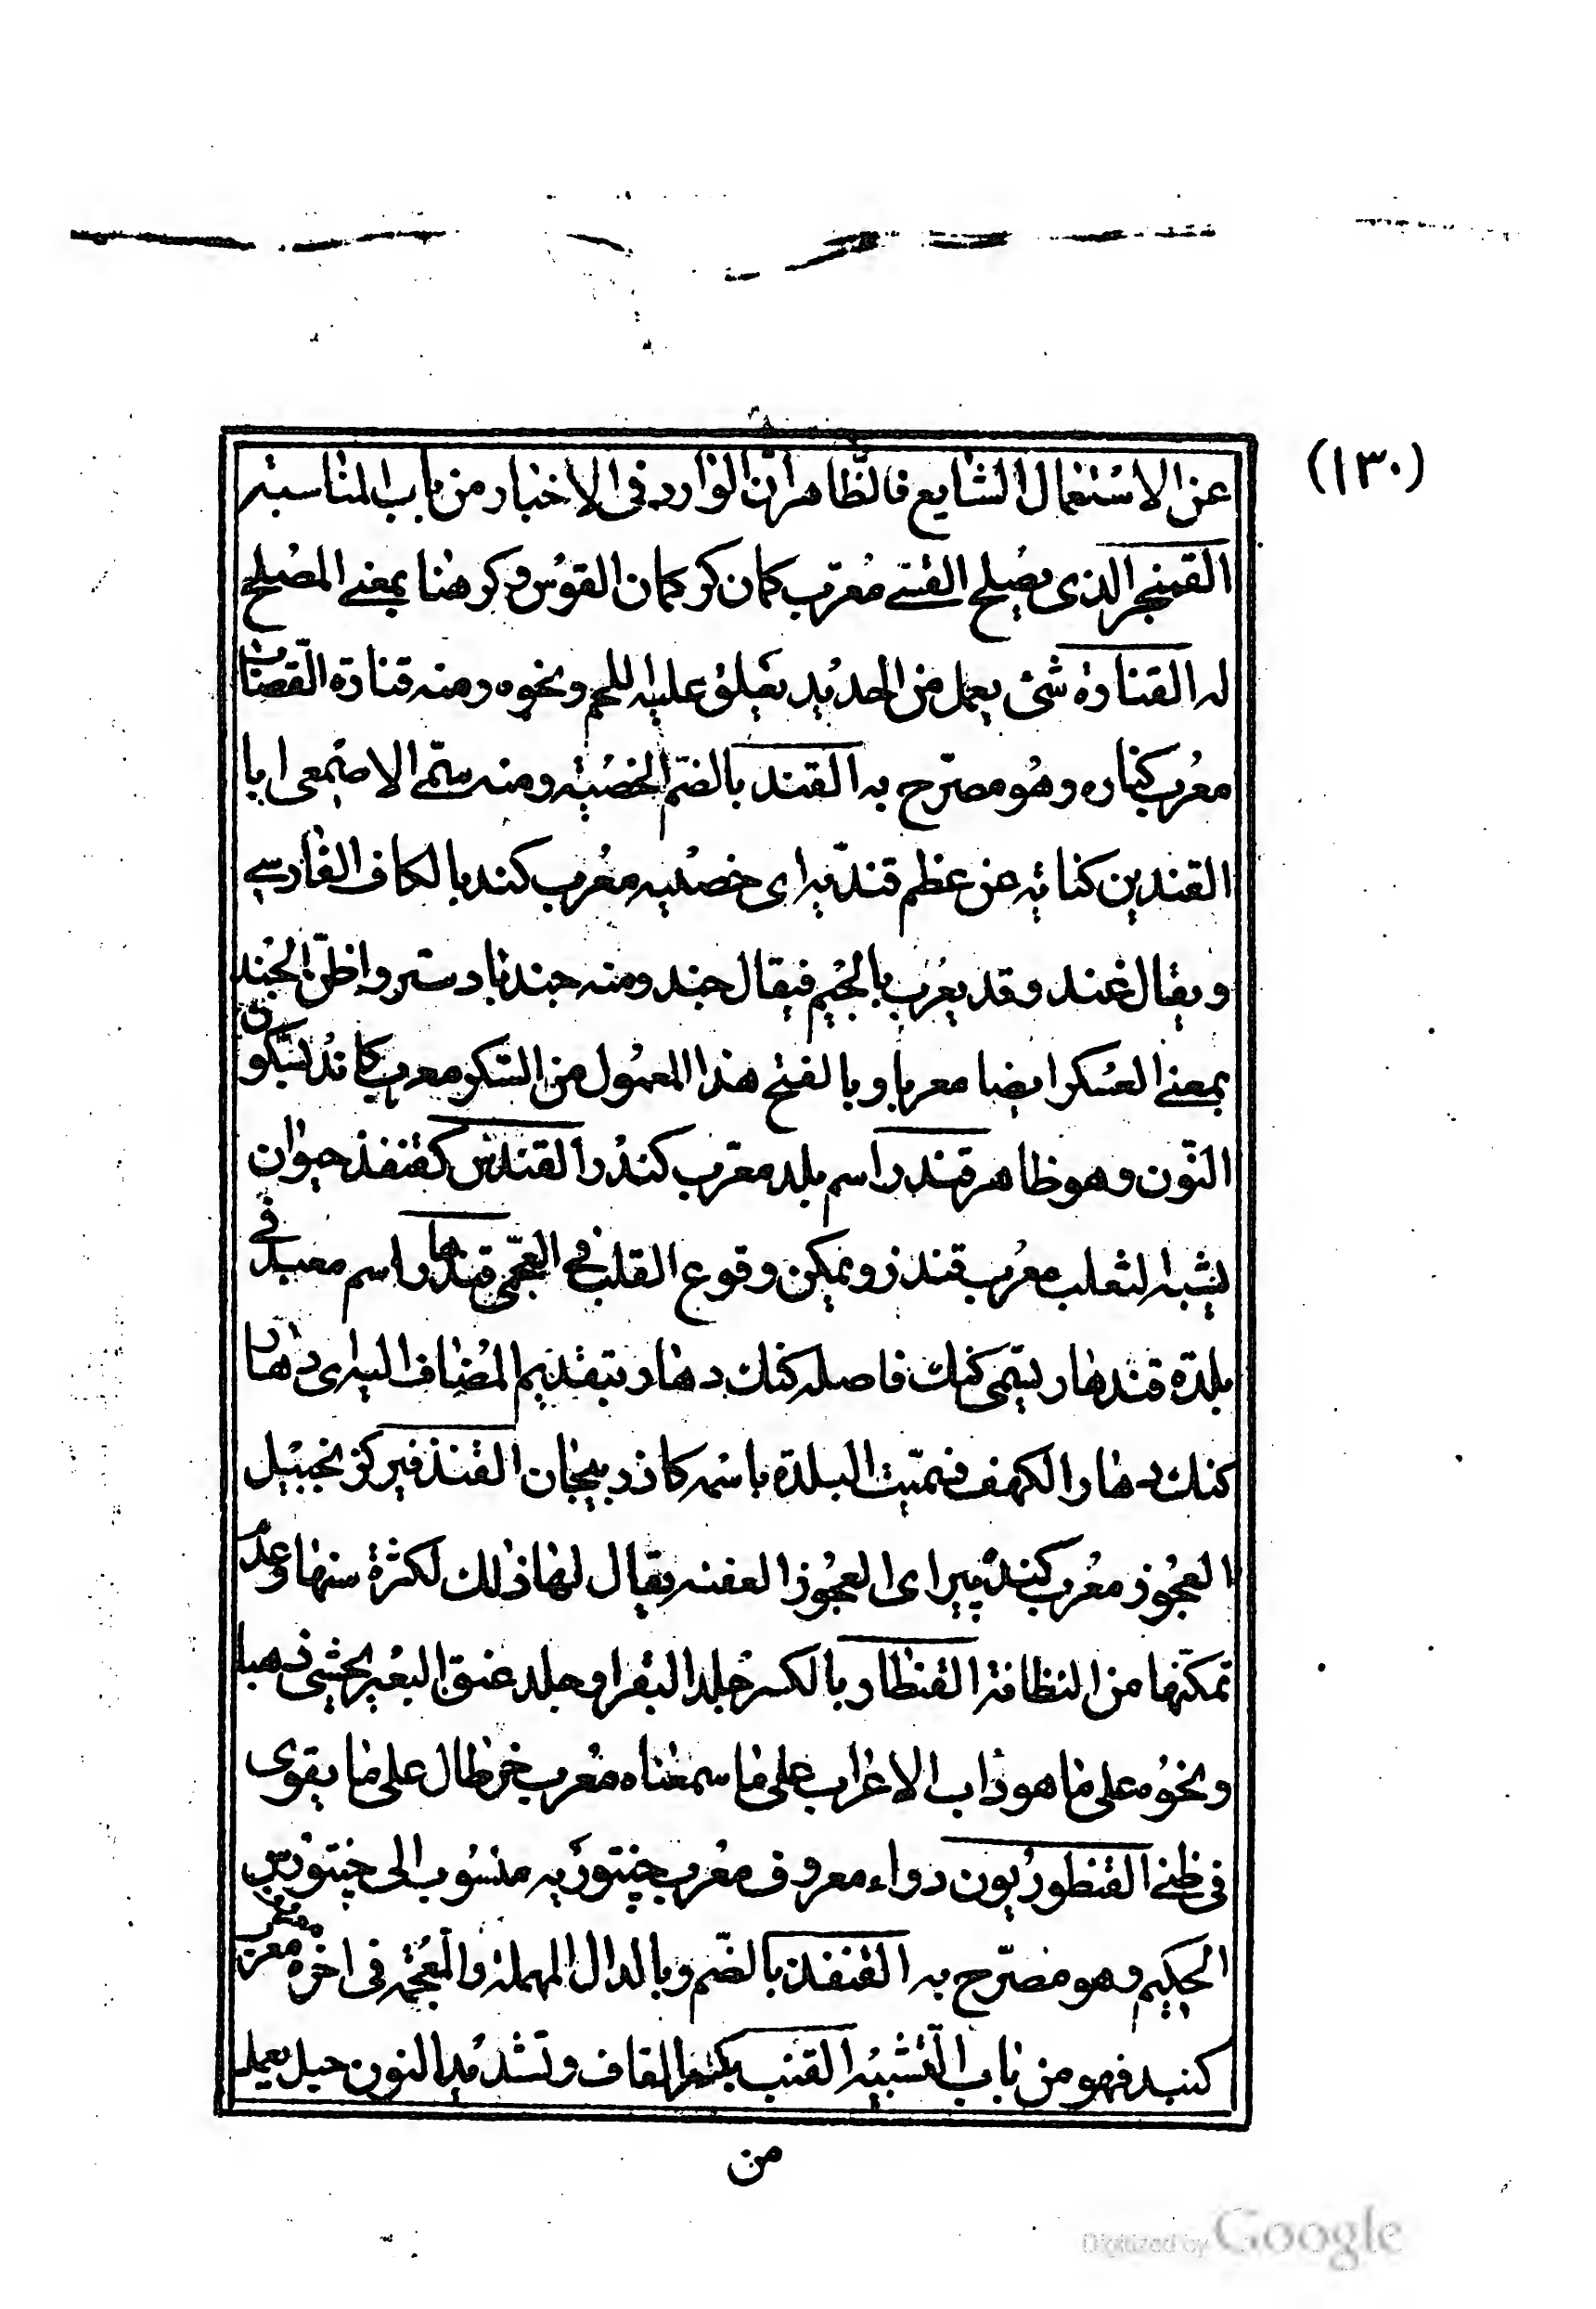 (١٣٠)
عن الاستعمال الشايع فالظّاهر انّ الوارد فى الاخبار من باب المناسبة
القمنجر الذى يصلح القسّى معرّب كمان كر كمان القوس و كر هنا بمعنى المصلح
له القنارة شئ يعمل من الحديد يعلق عليه اللحم ونحوه ومنه قنارة القصّاب
معرب كناره وهو مصرّح به القند بالضمّ الخصية ومنه سمّى الاصمعى ابا
القندين كناية عن عظم قنديه اى خصييه معرب كند بالكاف الفارسى
ويقال غند وقد يعرب بالجيم فيقال جند ومنه جند بادستر واظنّ الجند
بمعنى العسكر ايضا معربا وبالفتح هذا المعمول من السّكر معرب كاند بسكون
النّون وهو ظاهر قندر اسم بلد معرّب كندر القندس كقنفذ حيوان
يشبه الثعلب معرب قندز ويمكن وقوع القلب فى العجمى قندهار اسم معبد فى
بلدة قندهار يسمّى كنك فاصله كنك دهار بتقديم المضاف اليه اى دهار
كنك دهار الكهف فسمّيت البلدة باسمه كاذربيجان القنذفير كزنجبيل
العجوز معرب كنده پير اى العجوز العفنه يقال لها ذلك لكثرة سنها وعدم
تمكّنها من النظافة القنطار بالكسر جلد البقر او جلد عنق البعير يحشى ذهبا
ونحوه على ما هو داب الاعراب على ما سمعناه معرب خرطال على ما يقوى
فى ظنى القنطوريون دواء معروف معرب جنتوريه منسوب الى جنتورس
الحكيم وهو مصرّح به القنفذ بالضّم وبالدال المهملة والمعجمة فى اخره معرب
كنبد فهو من باب التشبيه القنب بكسر القاف وتشديد النون حبل يعمل
من
Digitized by Google